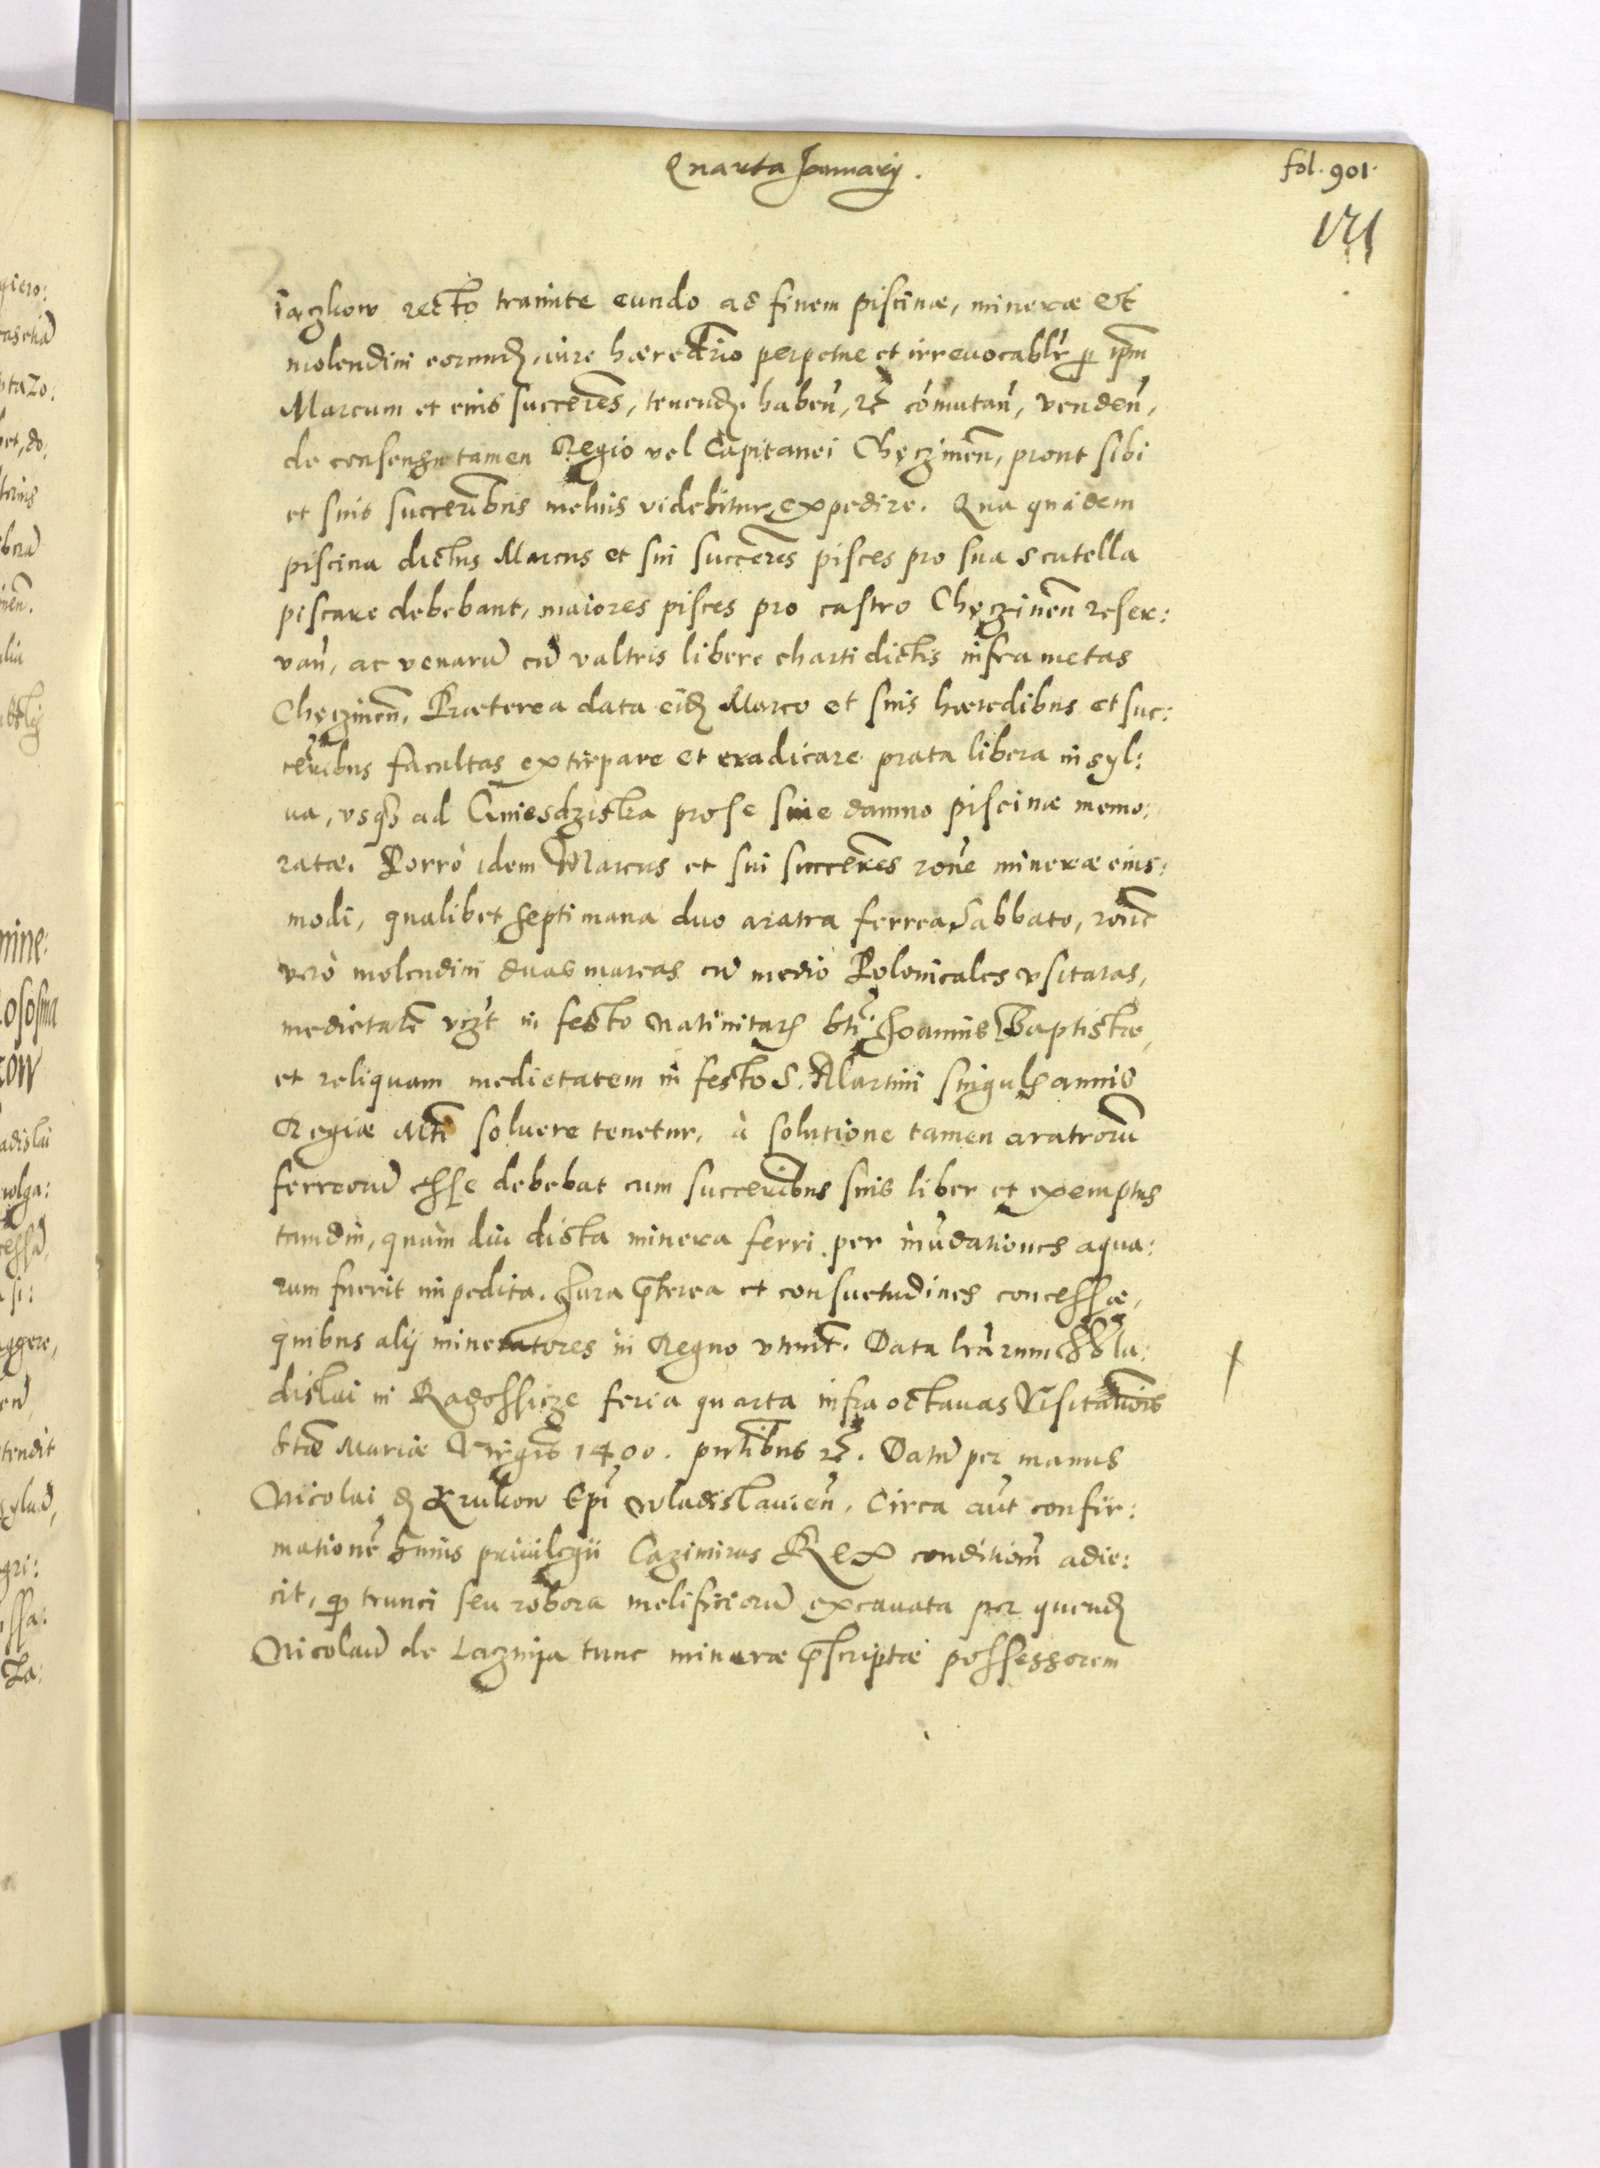 Quarta Januarij.
fol. 901.
171
iączkow recto tramite eundo ad finem piscinæ, mineræ Et
molendini eorund., iure hæredrio perpetue et irreuocablr p ipm
Marcum et eius succeres, tenend. haben, rc comutan, venden,
de consensu tamen Regio vel Capitanei Chęczinen, prout sibi
et suis succeribus melius videbitur expedire. Qua quidem
piscina dictus Marcus et sui succeres pisces pro sua scutella
piscare debebant, maiores pisces pro castro Chęczinen reser:
van, ac venaru cu valtris libere charti dictis infra metas
Chęczinen, Præterea data eid. Marco et suis hæredibus et suc:
ceribus facultas extirpare et eradicare prata libera in syl:
ua, vsq ad Gniesdziska pro se sine damno piscinæ memo:
ratæ. Porrò idem Marcus et sui succeres rone mineræ eius:
modi, qualibet septimana duo aratra ferrea Sabbato, rone
verò molendini duas marcas cu medio Polonicales vsitatas,
medietate vczt in festo Natiuitatis bti Joannis Baptistæ,
et reliquam medietatem in festo S. Martini singulis annis
Regiæ Mti soluere tenetur, à solutione tamen aratroru
ferreoru esse debebat cum succeribus suis liber et exemptus
tamdiu, quàm diu dicta minera ferri per inudationes aqua:
rum fuerit impedita. Jura pterea et consuetudines concessæ,
quibus alij mineratores in Regno vtunt. Data lrarum Wla:
dislai in Radossicze feria quarta infra octauas Visitationis
btæ Mariæ Virgis 1400. pntibus rc. Datu per manus
Nicolai d. Krukow Epi Wladislauien. Circa aut confir:
matione huius priuilegii Cazimirus Rex conditiom adie:
cit, q trunci seu robora melificioru excauata per quend.
Nicolau de Lagznija tunc mineræ pscriptæ possessorem